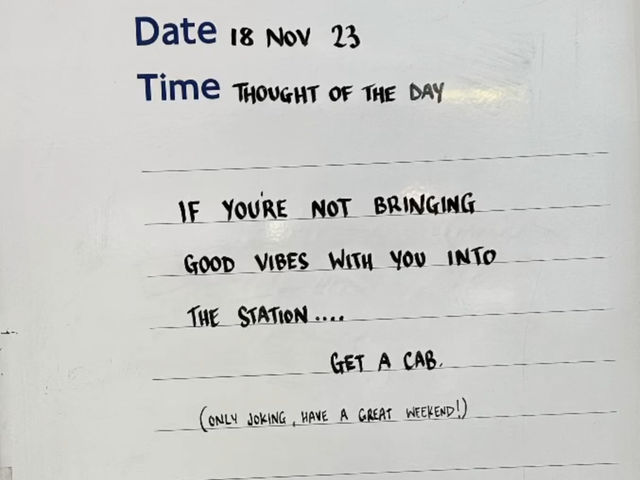 Date 18 NOV 23
Time THOUGHT OF THE DAY
IF YOU'RE NOT BRINGING
GOOD VIBES WITH YOU INTO
THE STATION....
GET A CAB.
(ONLY JOKING, HAVE A GREAT WEEKEND!)